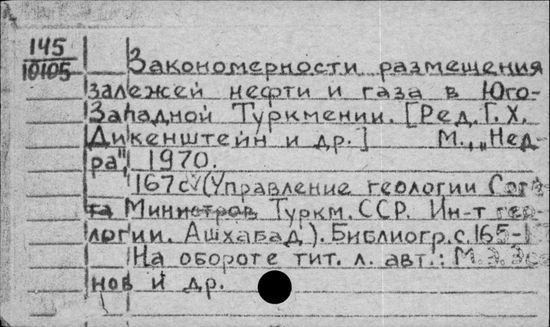 145
10105
Закономерности размещения
залежей нефти и газа в Юго-
Западной Туркмении. [Ред. Г. Х.
Дикенштейн и др.] М., „Нед-
ра", 1970.
167с. (Управление геологии
Министров Туркм. ССР. Ин-т
логии. Ашхабад). Библиогр. с. 165-
На обороте тит. л. авт.: М.Э.
нов и др.